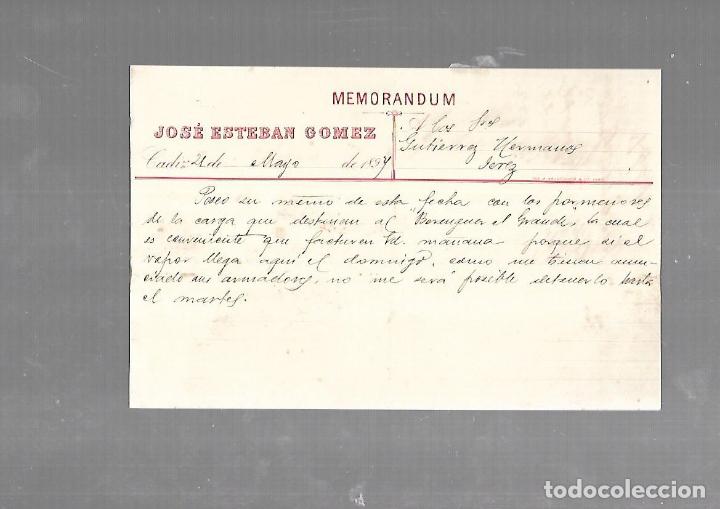 MEMORANDUM
JOSÉ ESTEBAN GOMEZ
Cadiz 21 de Mayo de 1897
A los Sres
Gutierrez Hermanos
Jeréz
Poseo su memo de esta fecha con los pormenores
de la carga que destinan al "Berenguer el Grande", la cual
es conveniente que facturen Vd. mañana porque si el
vapor llega aquí el domingo, como me tienen anun-
ciado sus armadores, no me será posible detenerlo hasta
el martes.
todocoleccion.net